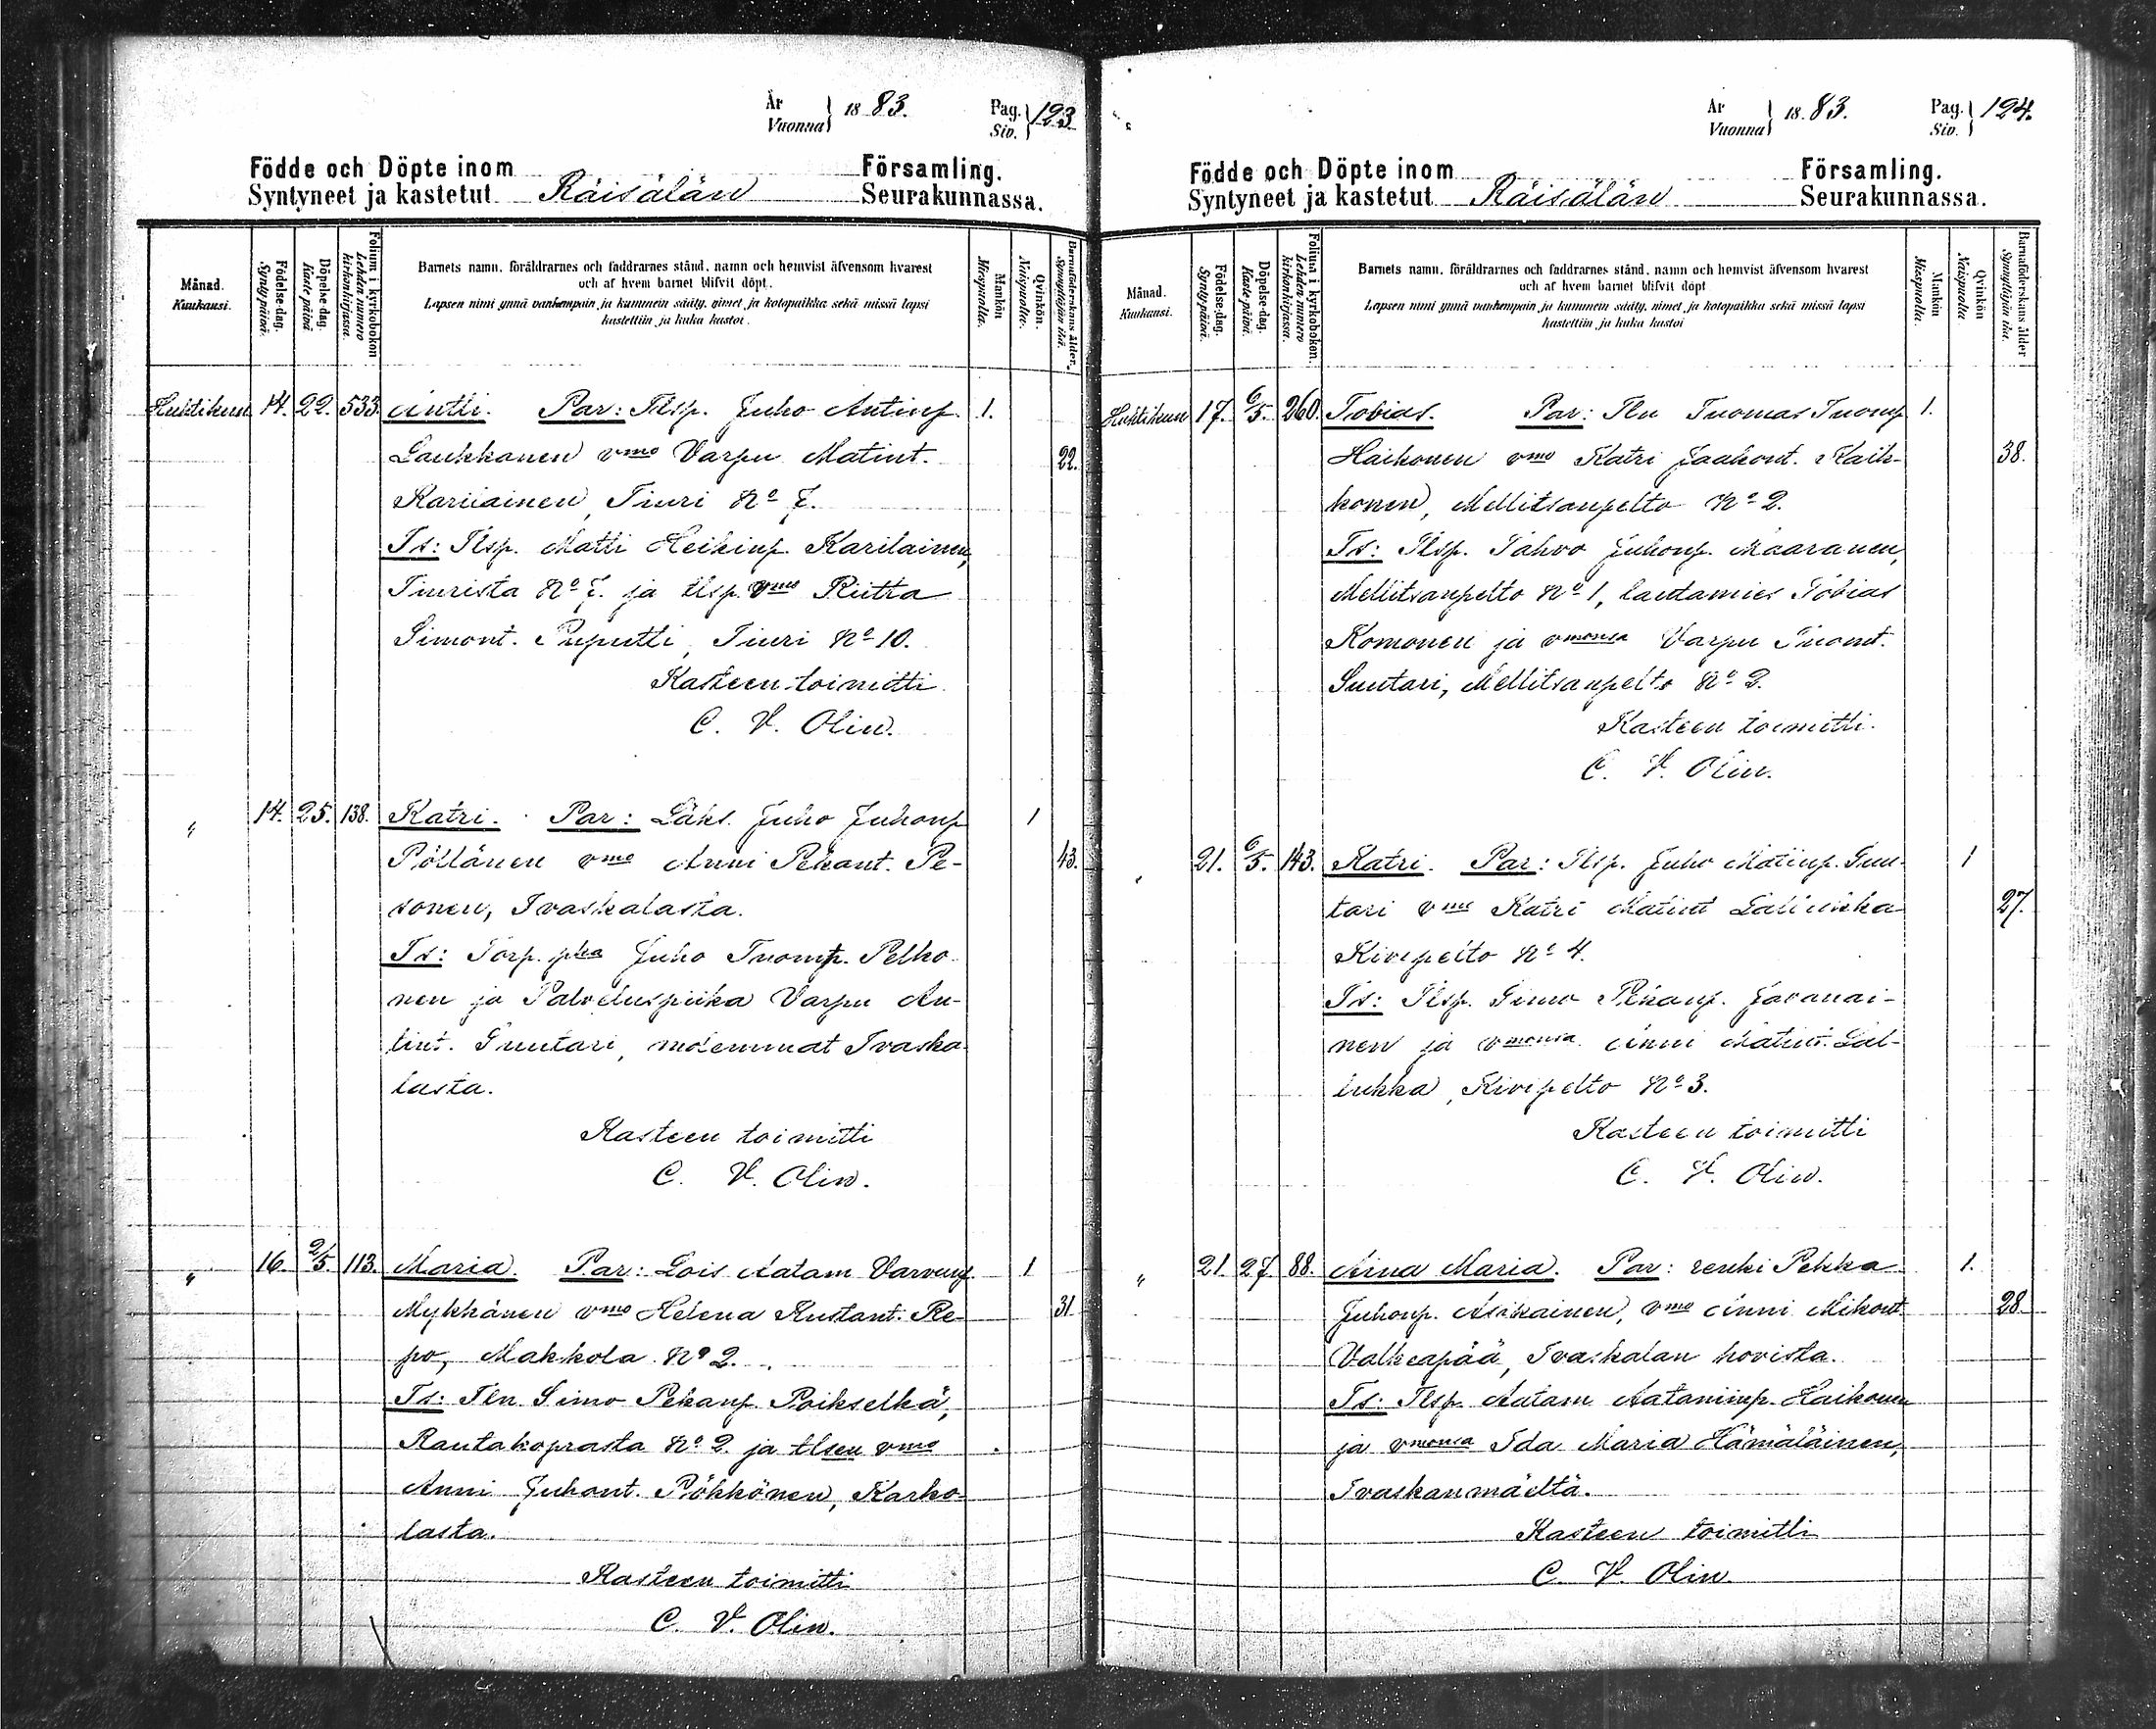 År
Vuonna } 18 83.
Pag.
Siv. } 123
Födde och Döpte inom Församling.
Syntyneet ja kastetut Räisälän Seurakunnassa.
Månad.
Kuukausi.
Födelse-dag.
Syntypäivä.
Döpelse-dag.
Kaste-päivä.
Folium i kyrkobokon
Lehden numero
kirkonkirjassa.
Barnets namn, föräldrarnes och faddrarnes stånd, namn och hemvist äfvensom hvarest
och af hvem barnet blifvit döpt.
Lapsen nimi ynnä vanhempain ja kummein sääty, nimet ja kotopaikka sekä missä lapsi
kastettiin ja kuka kastoi.
Mankön
Miespuolia.
Qvinkön.
Naispuolia.
Barnaföderskans ålder.
Synnyttäjän ikä.
Huhtikuu 14. 22. 533. Antti. Par: Tlsp. Juho Antinp. 1.
Laukkanen vmo Varpu Matint. 22.
Kariiainen, Tiuri No 7.
Ts: Tlsp. Matti Heikinp. Karilainen,
Tiurista No 7. ja tlsp. vmo Riitta
Simont. Puputti, Tiuri No 10.
Kasteen toimitti
C. V. Olin.
" 14. 25. 138. Katri. Par: Läks. Juho Juhonp 1
Pöllänen vmo Anni Pekant. Pe- 43.
sonen, Ivaskalasta.
Ts: Torp. pka Juho Tuomp. Pelko-
nen ja Palveluspiika Varpu An-
tint. Suutari, molemmat Ivaska-
lasta.
Kasteen toimitti
C. V. Olin.
" 16. 2/5. 113. Maria. Par: Lois Aatam Varvunp. 1
Mykkänen vmo Helena Kustant. Re- 31.
po, Makkola No 2.
Ts: Tln Simo Pekanp. Poikselkä,
Rautakoprasta No 2. ja tlsen vmo
Anni Juhont. Pökkönen, Karko-
lasta.
Kasteen toimitti
C. V. Olin.
År
Vuonna } 18 83.
Pag.
Siv. } 124.
Födde och Döpte inom Församling.
Syntyneet ja kastetut Räisälän Seurakunnassa.
Månad.
Kuukausi.
Födelse-dag.
Syntypäivä.
Döpelse-dag.
Kaste-päivä.
Folium i kyrkobokon.
Lehden numero
kirkonkirjassa.
Barnets namn, föräldrarnes och faddrarnes stånd, namn och hemvist äfvensom hvarest
och af hvem barnet blifvit döpt
Lapsen nimi ynnä vanhempain ja kummein sääty, nimet ja kotopaikka sekä missä lapsi
kastettiin ja kuka kastoi
Mankön
Miespuolia.
Qvinkön
Naispuolia
Barnaföderskans ålder
Synnyttäjän ikä.
Huhtikuu 17. 6/5. 260. Tobias. Par: Tln Tuomas Tuomp 1.
Haikonen vmo Katri Jaakont. Kaik- 38.
konen, Mellitsanpelto No 2.
Ts: Tlsp. Pahvo Juhonp. Maaranen,
Mellitsanpelto No 1, lautamies Tobias
Komonen ja vmonsa Varpu Tuomt.
Suutari, Mellitsanpelto No 2.
Kasteen toimitti.
C. V. Olin.
" 21. 6/5. 143. Katri. Par: Tlsp. Juho Matinp. Suu- 1
tari vmo Katri Matint Lallukka 27.
Kivipelto No 4.
Ts: Tlsp. Simo Pekanp. Javanai-
nen ja vmonsa Anni Matint. Lal-
lukka, Kivipelto No 3.
Kasteen toimitti
C. V. Olin.
" 21. 27. 88. Aina Maria. Par: renki Pekka 1.
Juhonp. Asikainen, vmo Anni Mikont 28.
Valkeapää, Ivaskalan hovista.
Ts: Tlsp. Aatam Aataminp. Haikonen
ja vmonsa Ida Maria Hämäläinen,
Ivaskanmäeltä.
Kasteen toimitti
C. V. Olin.